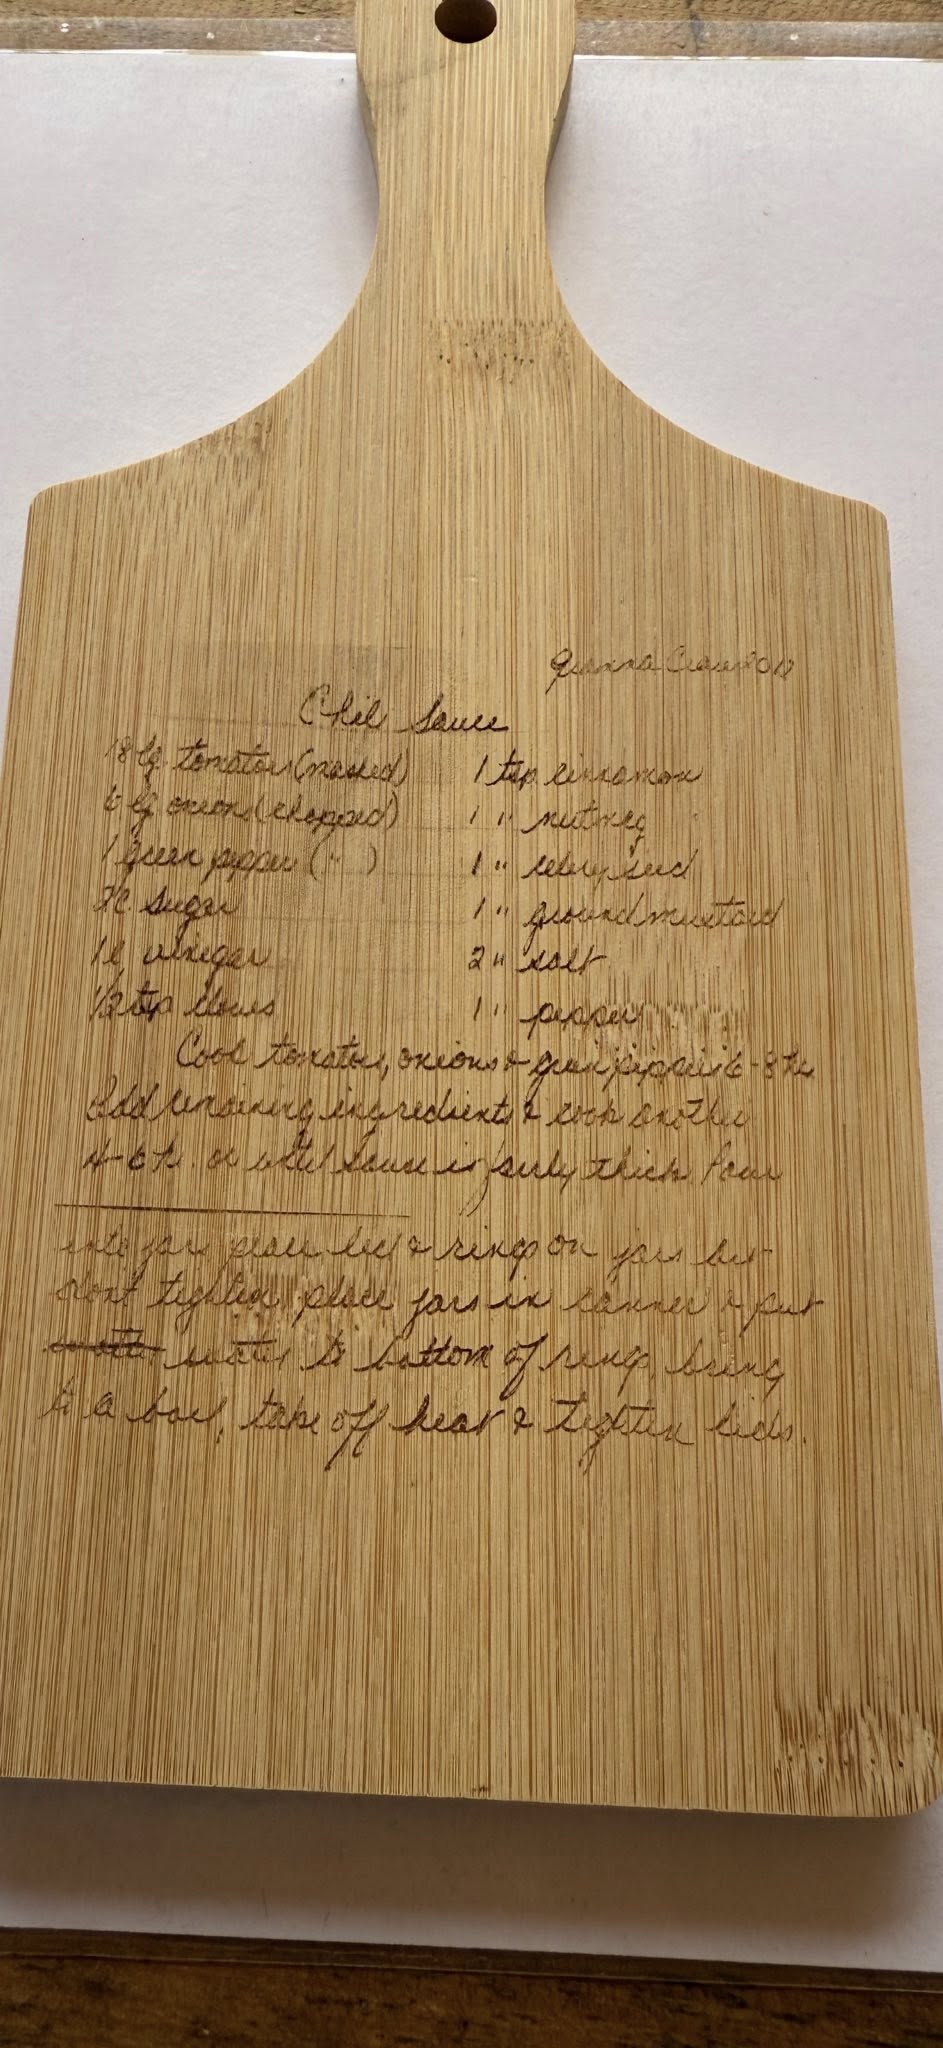 Chili Sauce
18 lg. tomatoes (mashed) 1 tsp. cinnamon
6 lg onions (chopped) 1 " nutmeg
1 green pepper ( " ) 1 " celery seed
2 C sugar 1 " ground mustard
1 C vinegar 2 " salt
1/2 tsp cloves 1 " pepper
Cook tomatoes, onions & green peppers 6-8 hr
Add remaining ingredients & cook another
4-6 h. or until sauce is fairly thick Pour
into jars place lid & rings on jars but
dont tighten place jars in canner & put
water to bottom of rings, bring
to a boil, take off heat & tighten lids.